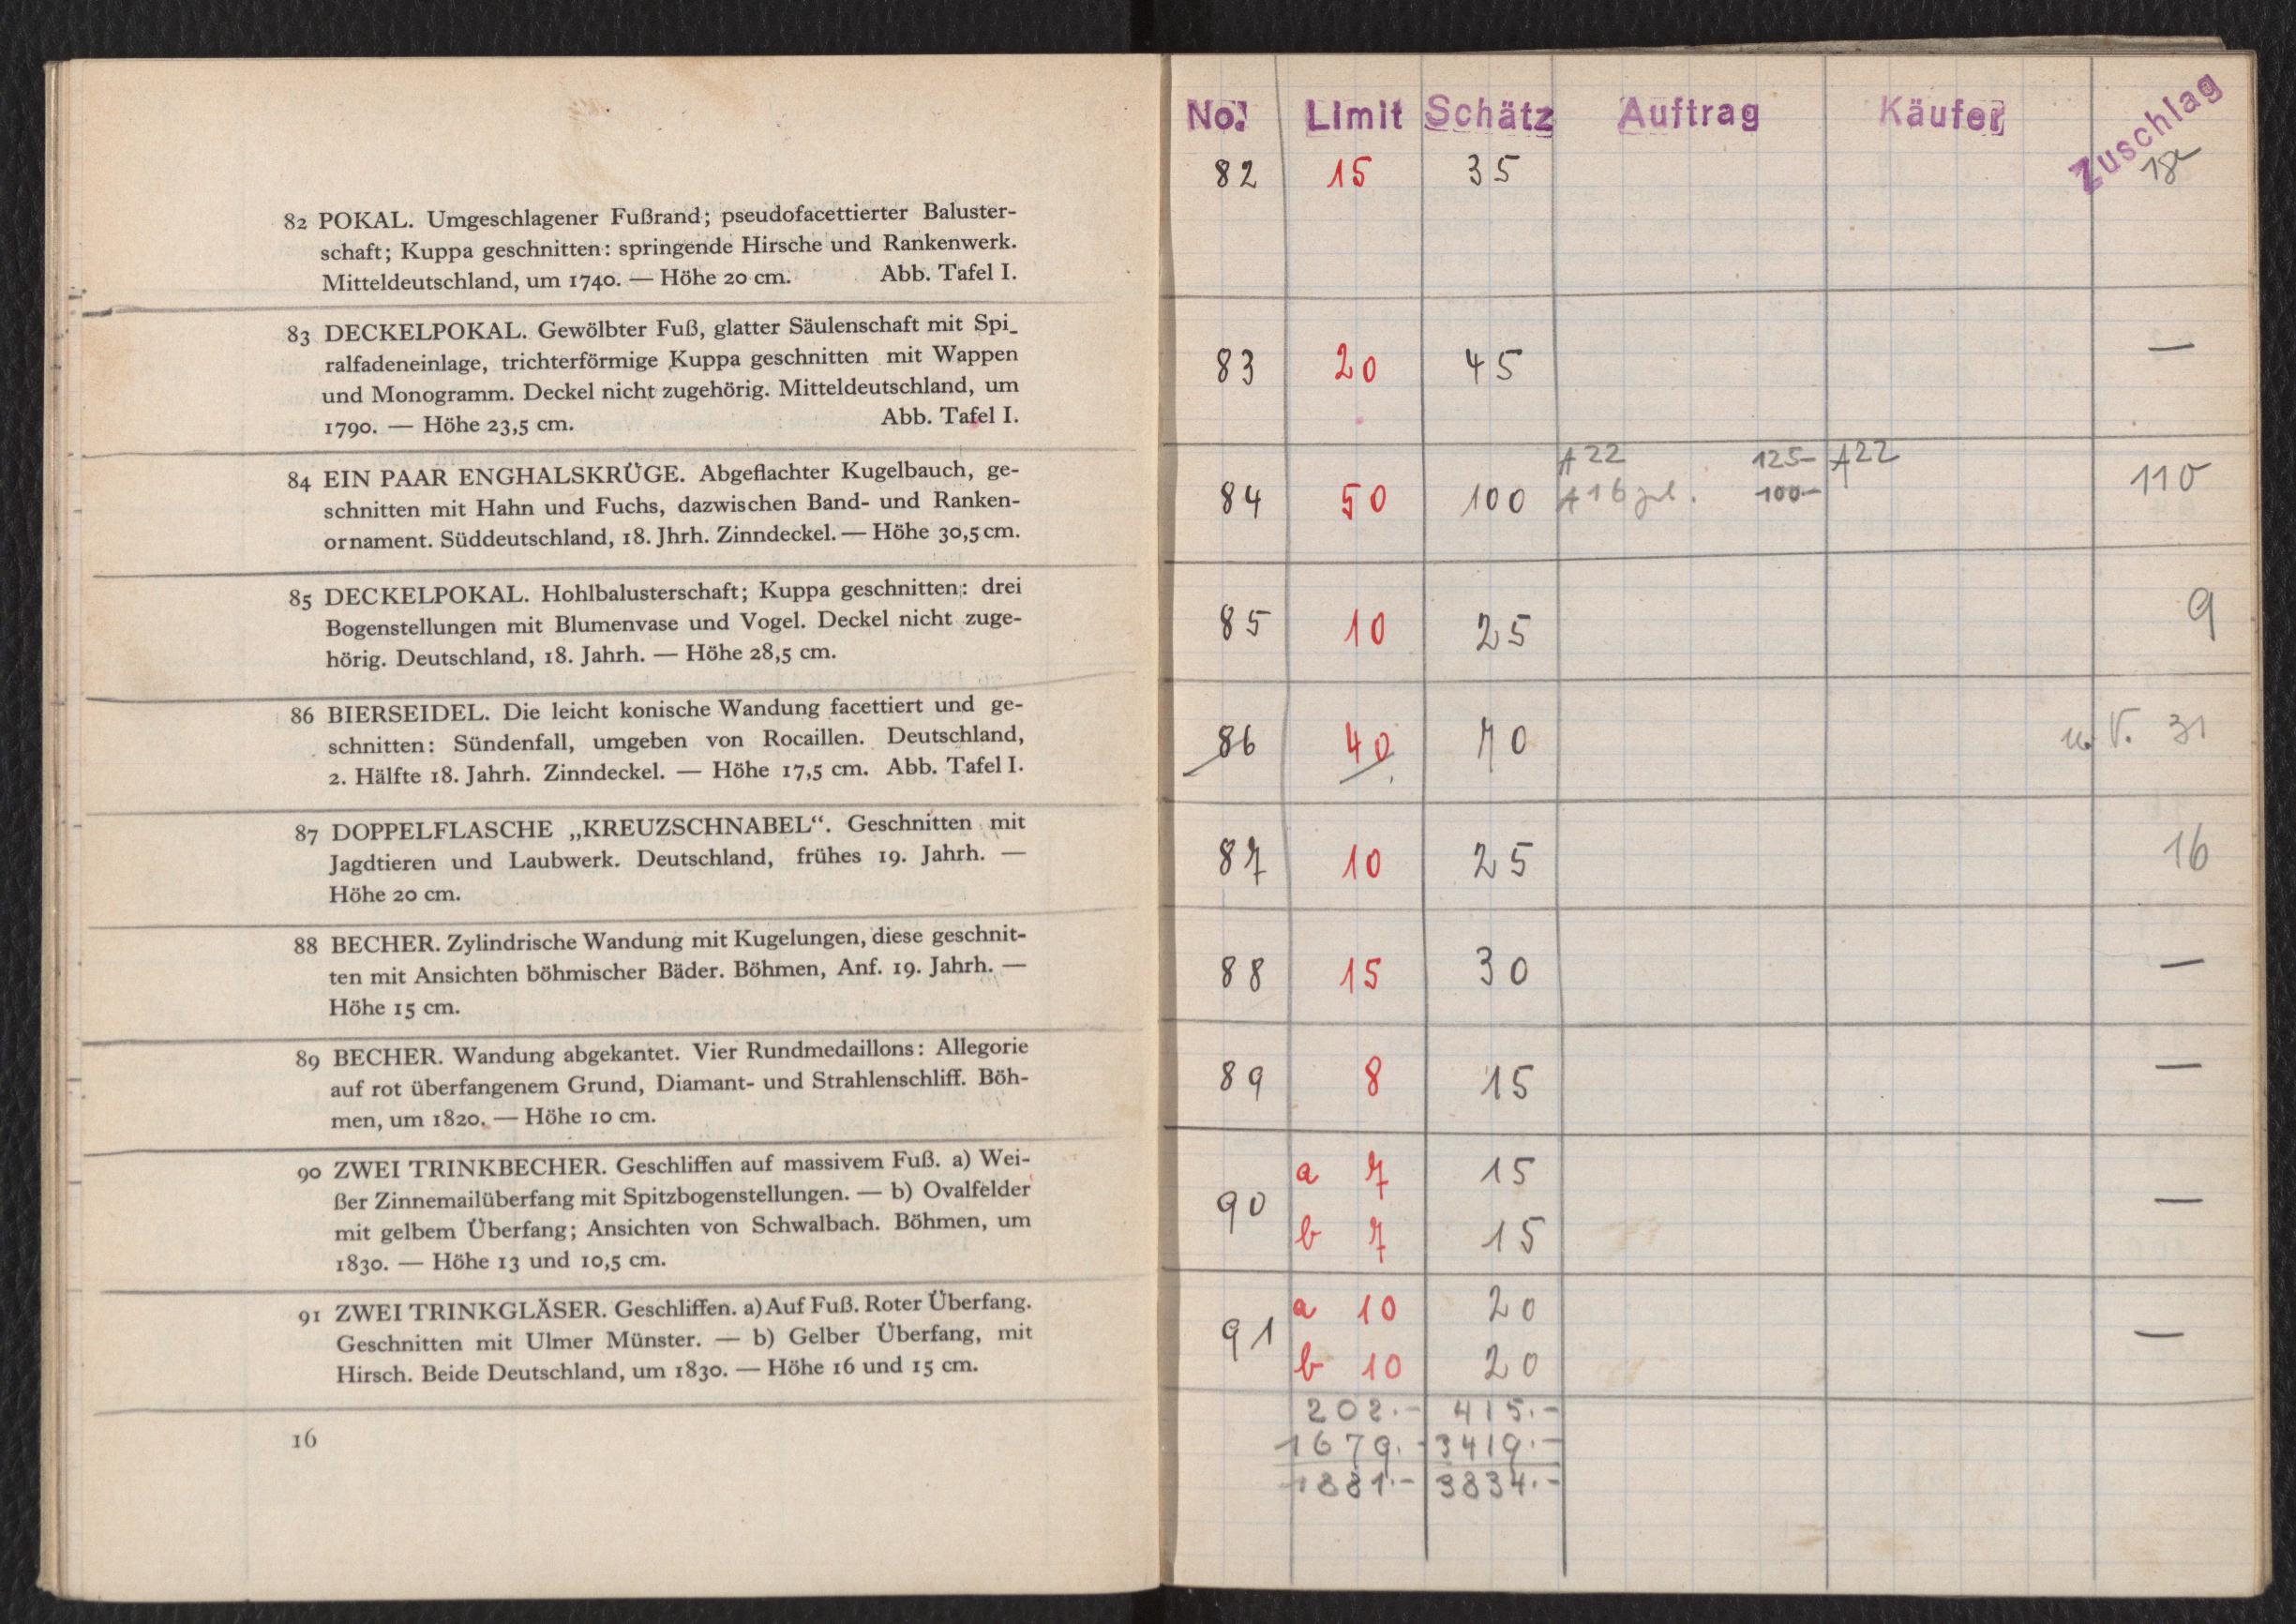 82 POKAL. Umgeschlagener Fußrand; pseudofacettierter Baluster-
schaft; Kuppa geschnitten: springende Hirsche und Rankenwerk.
Mitteldeutschland, um 1740. — Höhe 20 cm. Abb. Tafel I.
83 DECKELPOKAL. Gewölbter Fuß, glatter Säulenschaft mit Spi-
ralfadeneinlage, trichterförmige Kuppa geschnitten mit Wappen
und Monogramm. Deckel nicht zugehörig. Mitteldeutschland, um
1790. — Höhe 23,5 cm. Abb. Tafel I.
84 EIN PAAR ENGHALSKRÜGE. Abgeflachter Kugelbauch, ge-
schnitten mit Hahn und Fuchs, dazwischen Band- und Ranken-
ornament. Süddeutschland, 18. Jhrh. Zinndeckel. — Höhe 30,5 cm.
85 DECKELPOKAL. Hohlbalusterschaft; Kuppa geschnitten: drei
Bogenstellungen mit Blumenvase und Vogel. Deckel nicht zuge-
hörig. Deutschland, 18. Jahrh. — Höhe 28,5 cm.
86 BIERSEIDEL. Die leicht konische Wandung facettiert und ge-
schnitten: Sündenfall, umgeben von Rocaillen. Deutschland,
2. Hälfte 18. Jahrh. Zinndeckel. — Höhe 17,5 cm. Abb. Tafel I.
87 DOPPELFLASCHE „KREUZSCHNABEL“. Geschnitten mit
Jagdtieren und Laubwerk. Deutschland, frühes 19. Jahrh. —
Höhe 20 cm.
88 BECHER. Zylindrische Wandung mit Kugelungen, diese geschnit-
ten mit Ansichten böhmischer Bäder. Böhmen, Anf. 19. Jahrh. —
Höhe 15 cm.
89 BECHER. Wandung abgekantet. Vier Rundmedaillons: Allegorie
auf rot überfangenem Grund, Diamant- und Strahlenschliff. Böh-
men, um 1820. — Höhe 10 cm.
90 ZWEI TRINKBECHER. Geschliffen auf massivem Fuß. a) Wei-
ßer Zinnemailüberfang mit Spitzbogenstellungen. — b) Ovalfelder
mit gelbem Überfang; Ansichten von Schwalbach. Böhmen, um
1830. — Höhe 13 und 10,5 cm.
91 ZWEI TRINKGLÄSER. Geschliffen. a) Auf Fuß. Roter Überfang.
Geschnitten mit Ulmer Münster. — b) Gelber Überfang, mit
Hirsch. Beide Deutschland, um 1830. — Höhe 16 und 15 cm.
16
No. Limit Schätz Auftrag Käufer Zuschlag
82 15 35 18
83 20 45 —
A 22 125- A 22
84 50 100 A 16 100- 110
85 10 25 9
86 40 70 u. V. 31
87 10 25 16
88 15 30 —
89 8 15 —
a 7 15
90 —
b 7 15
a 10 20
91 —
b 10 20
202.- 415.-
1679.- 3419.-
1881.- 3834.-